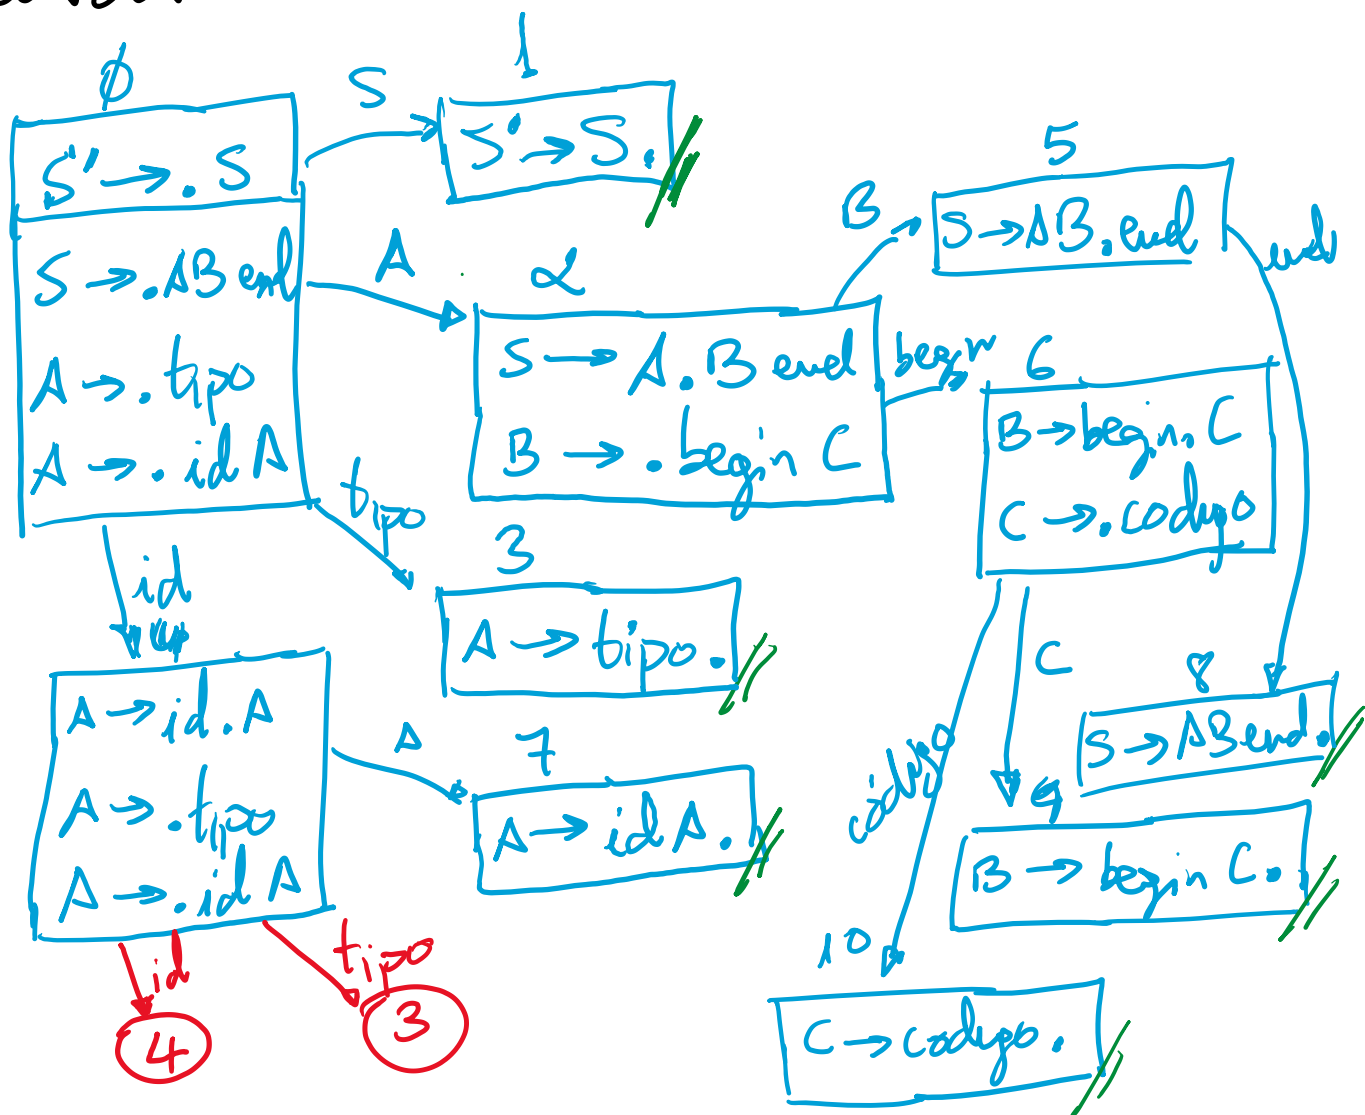 0
S' → . S
S → . A B end
A → . tipo
A → . id A
S
1
S' → S .
A
2
S → A . B end
B → . begin C
B
5
S → A B . end
end
begin
6
B → begin . C
C → . codigo
tipo
3
A → tipo .
id
4
A → id . A
A → . tipo
A → . id A
A
7
A → id A .
id
4
tipo
3
C
8
S → A B end .
9
B → begin C .
codigo
10
C → codigo .